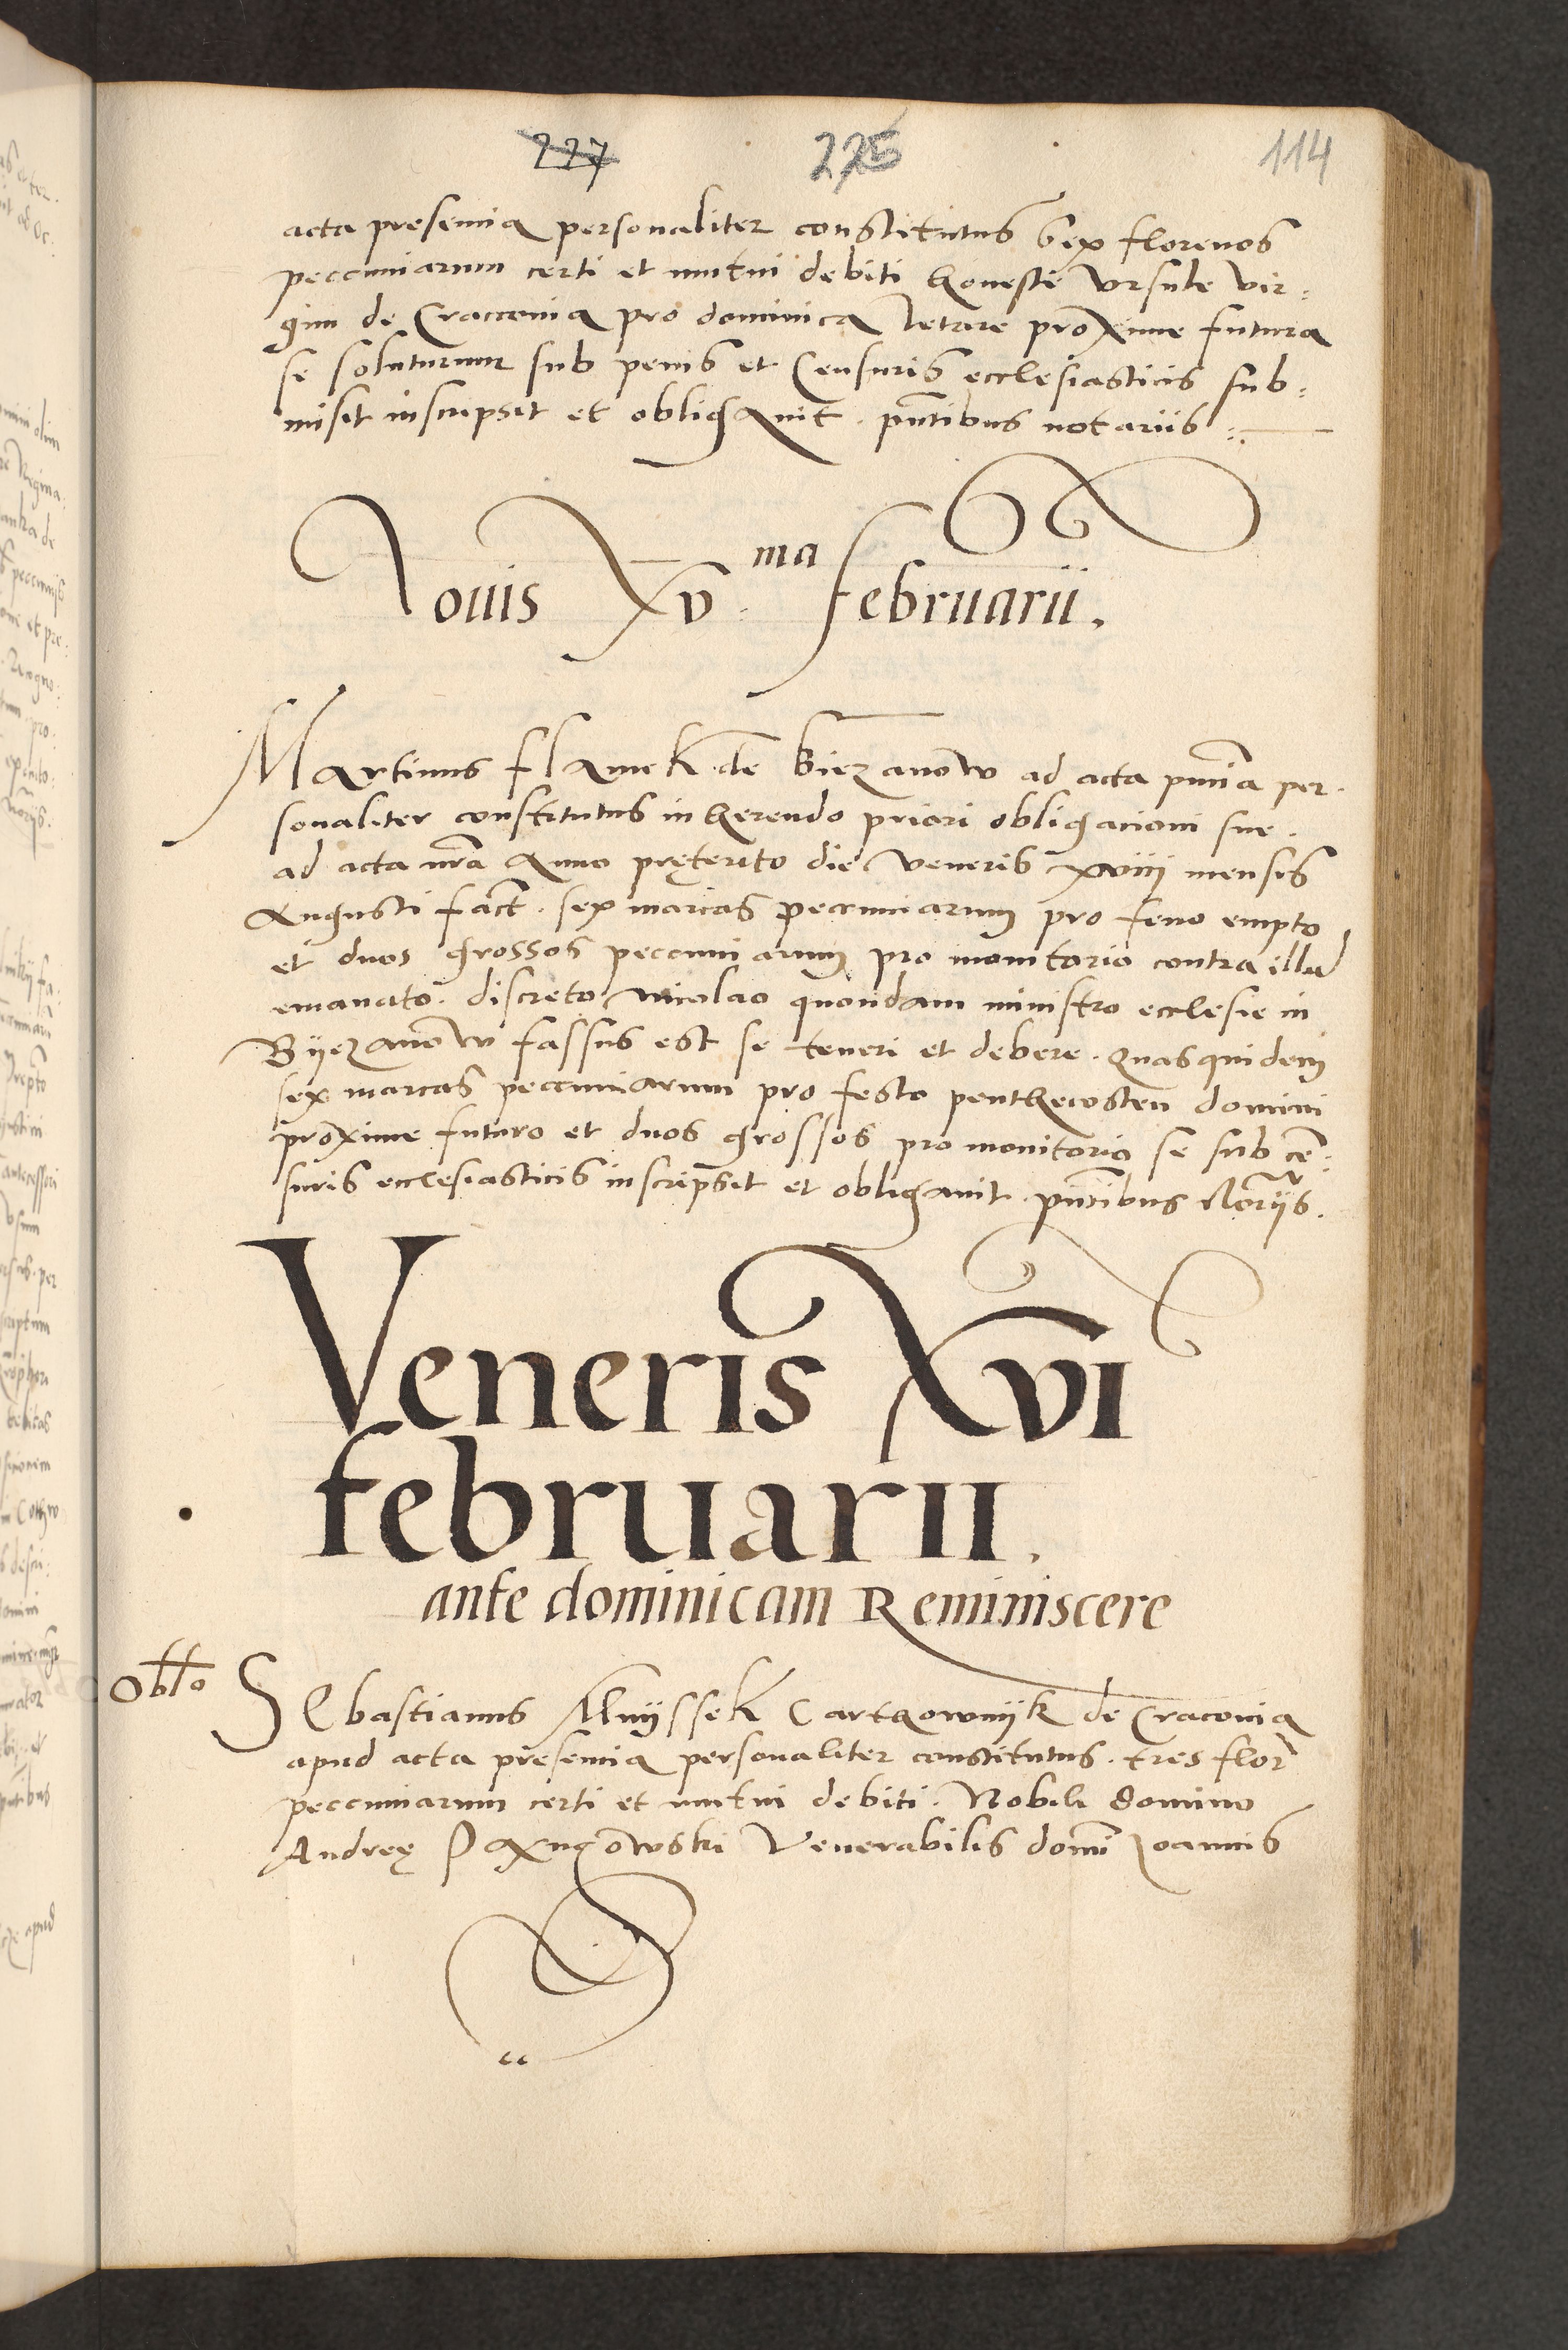 227 225 114
acta presencia personaliter constitutus sex florenos
peccuniarum certi et mutui debiti honeste Vrsule vir=
gini de Cracconia pro dominica letare proxime futura
se soluturum sub penis et Censuris ecclesiasticis sub=
misit inscripsit et obligavit. pñtibus notariis
Iouis Xv.ma februarii.
Martinus flamek de biezanow ad acta pñcia per-
sonaliter constitutus inherendo priori obligacioni sue.
ad acta nr̃a Anno pręterito die Veneris xviiij mensis
Augusti fact. sex marcas peccuniarum pro feno empto
et duos grossos peccuniarum pro monitorio contra illud
emanato. discreto Nicolao quondam ministro ecclesie in
Byezanow fassus est se teneri et debere. quasquidem
sex marcas peccuniarum pro festo penthecosten domini
proxime futuro et duos grossos pro monitorio se sub cẽ=
suris ecclesiasticis inscripsit et obligavit. pñtibus Notrijs.
Veneris Xvi
februarii.
ante dominicam Reminiscere
Obl̃o
SEbastianus Mnyssek Carthownyk de Craconia
apud acta presencia personaliter constitutus. tres flor
peccuniarum certi et mutui debiti. Nobili domino
Andreę Paxngowski Venerabilis domĩ Ioannis